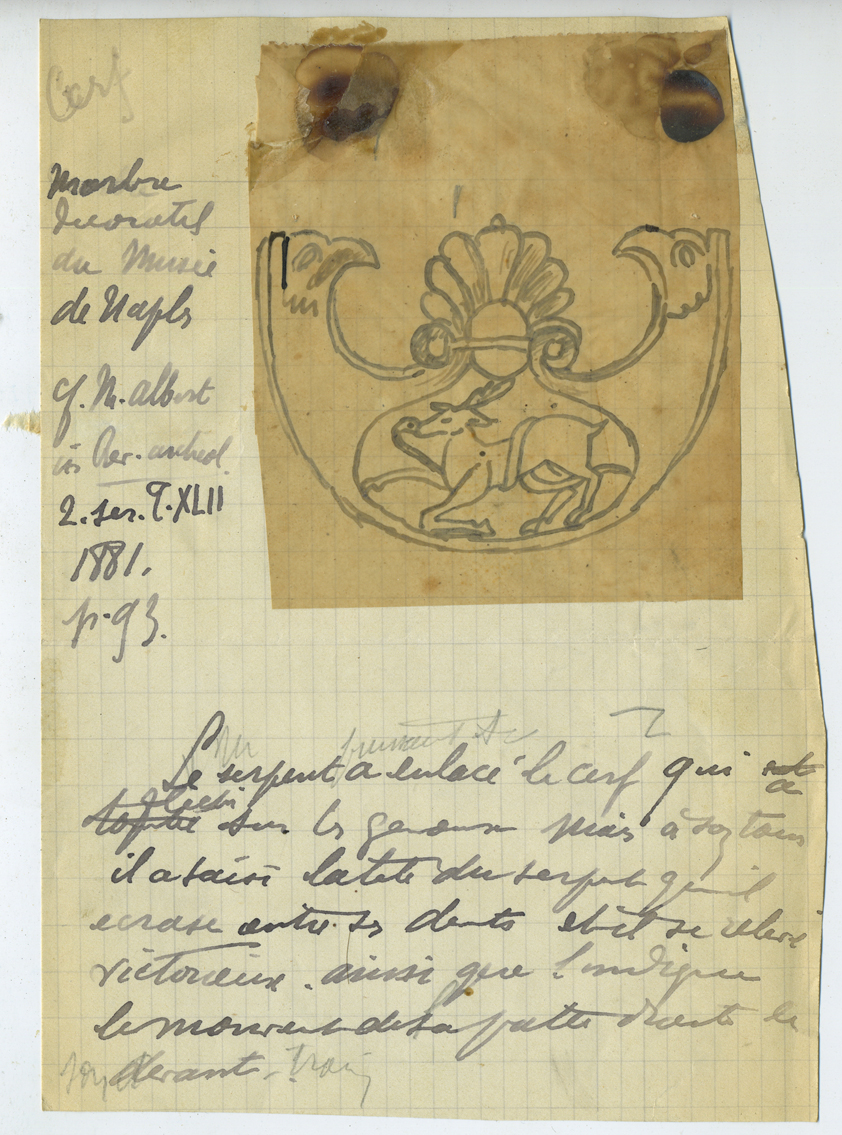 Cerf
Marbre
décoratif
du Musée
de Naples
cf. M. Albert
in Rev. archéol.
2. ser. T. XLII
1881.
p. 93.
Le serpent a enlacé le cerf qui
a
fléchi
sur les genoux mais à son tour
il a saisi la tête du serpent qu'il
ecrase entre ses dents et il se relève
victorieux. ainsi que l'indique
le mouvement de sa patte droite de
devant train